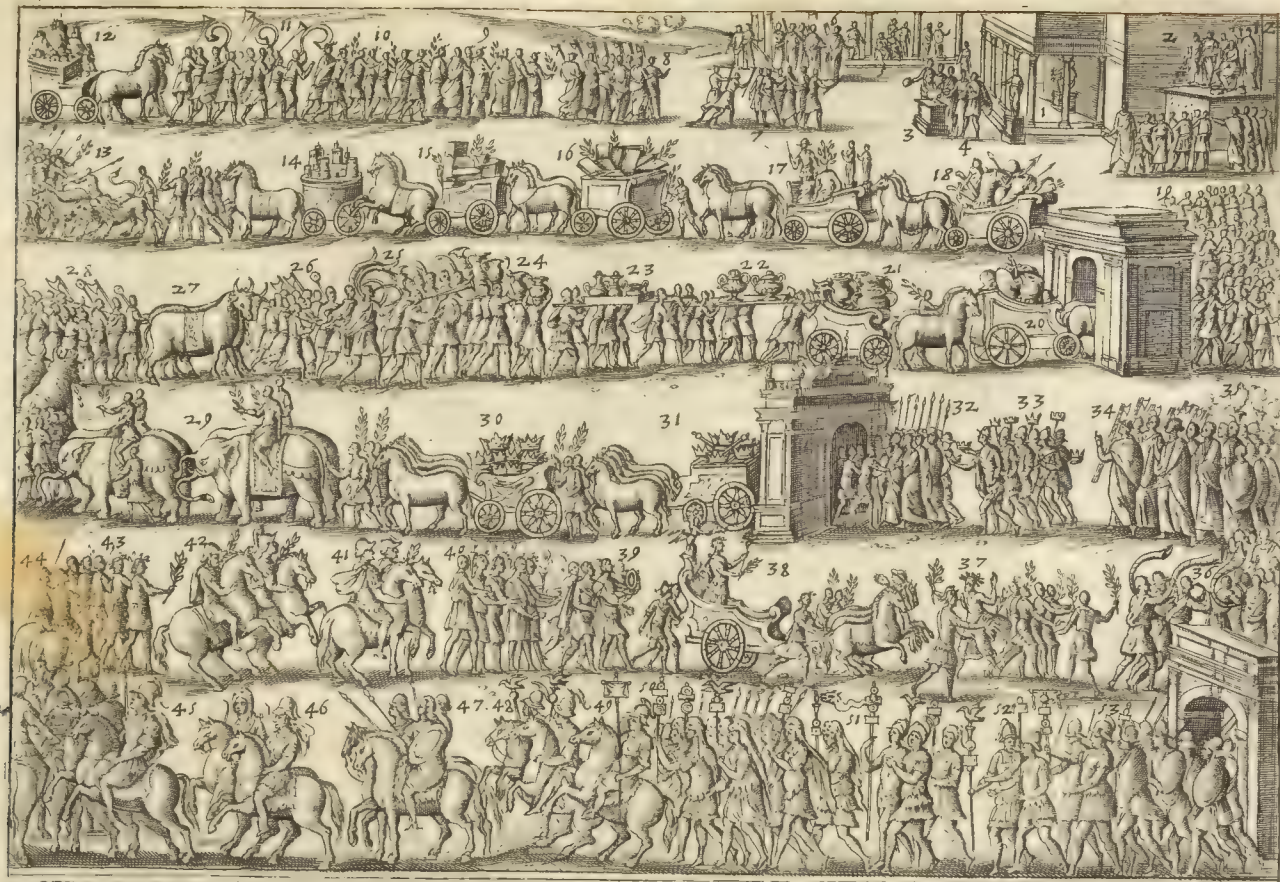 12 11 10 9 8 6 2 12
7 3 4 1
13 14 15 16 17 18 19
28 27 26 25 24 23 22 21 20
29 30 31 32 33 34 35
44 43 42 41 40 39 38 37 36
45 46 47 48 49 50 51 52 53